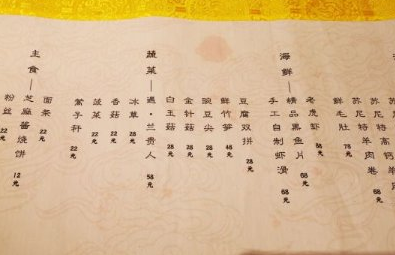 苏尼特高钙羊
苏尼特羊肉卷 68元
鲜毛肚 78元
海鲜——
老虎虾 88元
精品黑鱼片 68元
手工自制虾滑 68元
豆腐双拼 28元
鲜竹笋 48元
豌豆尖 28元
金针菇 28元
白玉菇 28元
蔬菜——
遇·兰贵人 58元
冰草 28元
香菇 22元
菠菜 22元
蒿子秆 22元
主食——
面条 22元
芝麻酱烧饼 12元
粉丝 22元